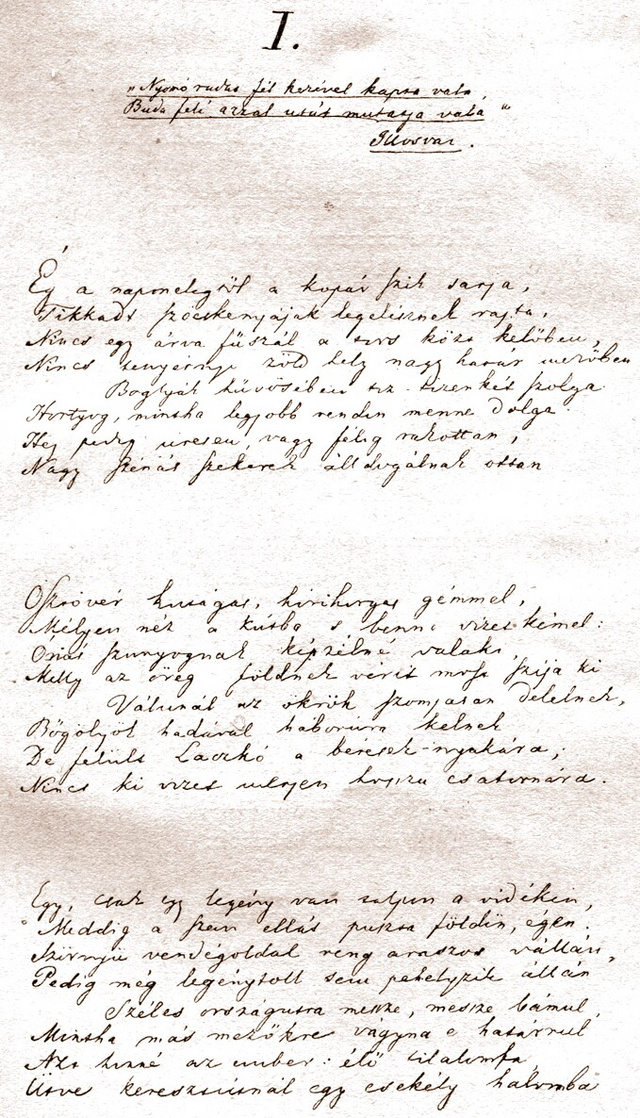 I.
„Nyomó rudas fél kezével kapta vala,
Buda felé azzal utát mutatja vala“
Ilosvai.
Ég a napmelegtől a kopár szik sarja,
Tikkadt szöcskenyájak legelésznek rajta,
Nincs egy árva fűszál a tors közt kelőben,
Nincs tenyérnyi zöld hely nagy határ mezőben
Boglyák hűvösében tiz-tizenkét szolga
Hortyog, mintha legjobb rendin menne dolga.
Hej pedig üresen, vagy félig rakottan,
Nagy szénás szekerek álldogálnak ottan
Ösztövér kutágas, hórihorgas gémmel,
Mélyen néz a kútba s benne vizet kémel:
Óriás szunyognak képzelné valaki,
Melly az öreg földnek vérit most szíja ki
Válunál az ökrök szomjasan delelnek,
Bögölyök hadával háborúra kelnek
De felült Laczkó a béresek nyakára,
Nincs ki vizet merjen hosszu csatornára.
Egy, csak egy legény van talpon a vidéken,
Meddig a szem ellát puszta földön, égen.
Szörnyü vendégoldal reng araszos vállán,
Pedig még legénytoll sem pehelyzik állán
Széles országutra messze, messze bámul,
Mintha más mezőkre vágyna e határrul
Azt hinné az ember: élő tilalomfa
Ütve keresztútnál egy csekély halomba